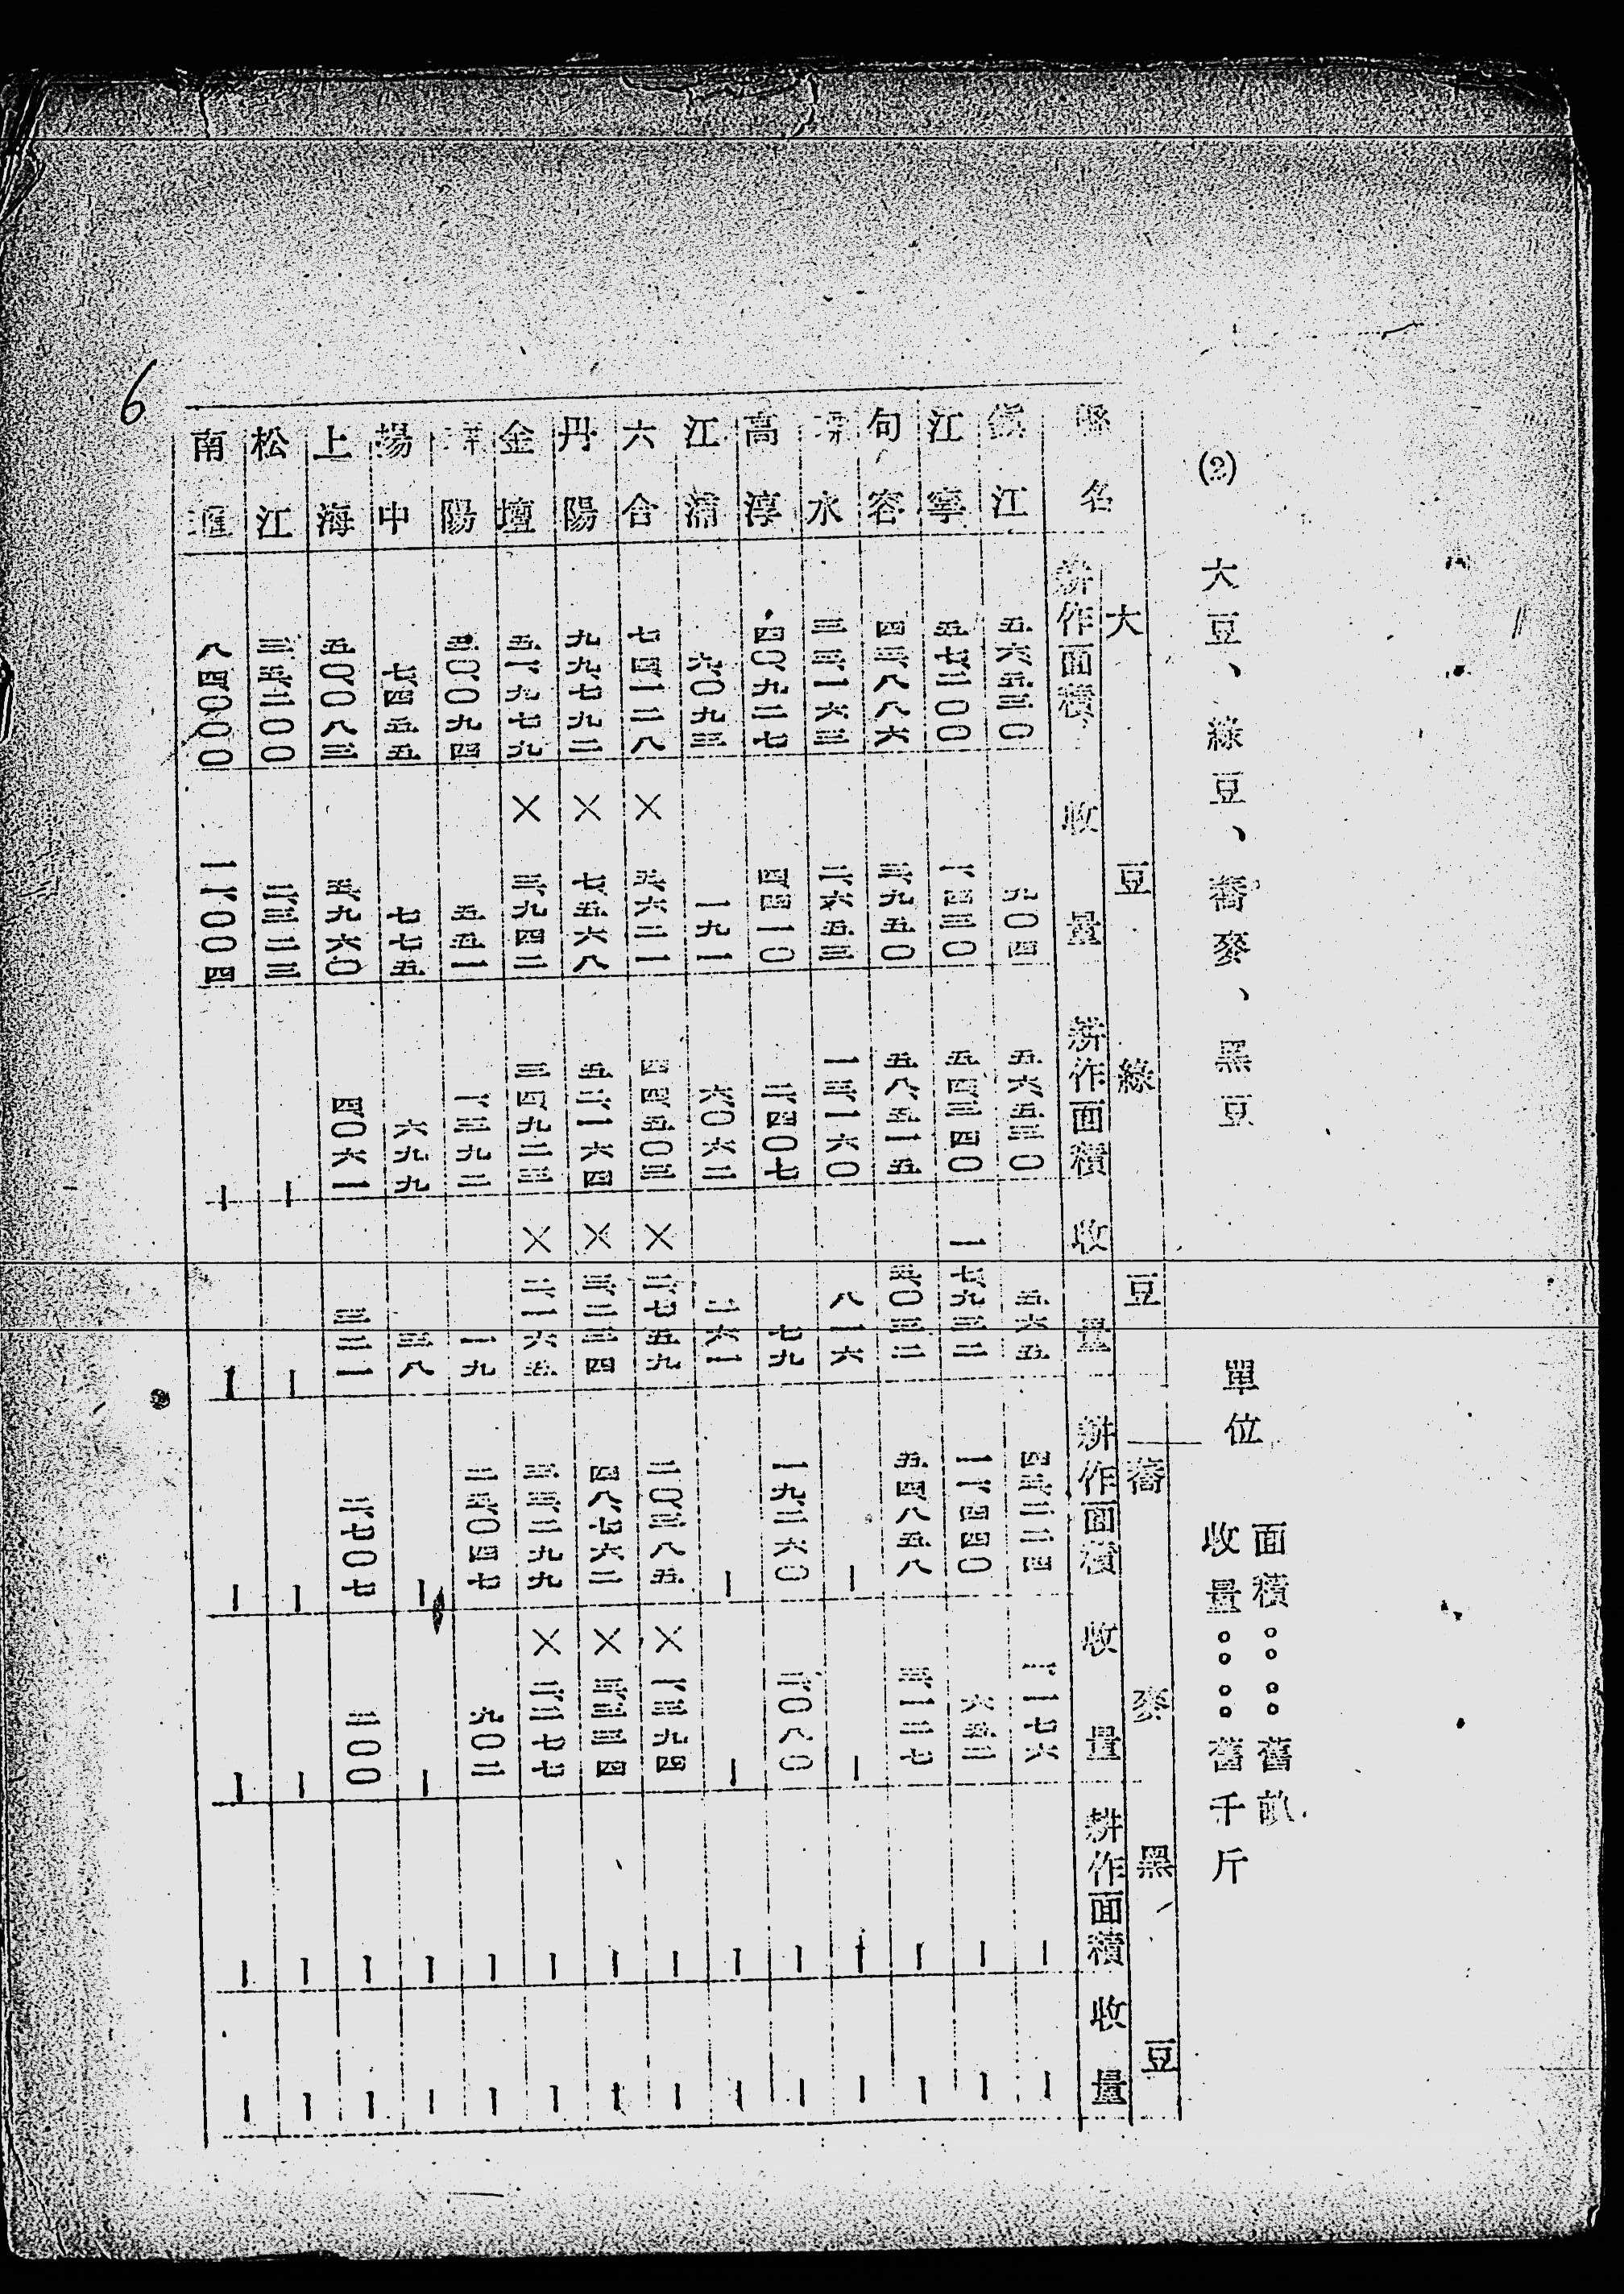 (2) 大豆、綠豆、蕎麥、黑豆 單位 面積……舊畝
收量……舊千斤
大豆 綠豆 蕎麥 黑豆
縣名 耕作面積 收量 耕作面積 收量 耕作面積 收量 耕作面積 收量
江 五六五三〇 九〇四 五六五三〇 五六五 四三二二四 一一七六 — —
江寧 五七二〇〇 一四三〇 五四三四〇 一七九三二 一一四四〇 六五二 — —
句容 四三八八六 三九五〇 五八五一五 五〇三二 五四八五八 三一二七 — —
水 三三一六三 二六五三 一三一六〇 八一六 — — — —
高淳 四〇九二七 四四一〇 二四〇七 七九 一九二六〇 二〇八〇 — —
江浦 九〇九三 一九一 六〇六二 二六一 — — — —
六合 七四一二八 × 五六二一 四四五〇三 × 二七五九 二〇三八五 × 一三九四 — —
丹陽 九九七九二 × 七五六八 五二一六四 × 三二三四 四八七六二 × 三三三四 — —
金壇 五一九七九 × 三九四二 三四九二三 × 二一六五 三三二九九 × 二二七七 — —
陽 五〇〇九四 五五一 一三九二 一九 二五〇四七 九〇二 — —
揚中 七四五五 七七五 六九九 三八 — — — —
上海 五〇〇八三 五九六〇 四〇六一 三二一 二七〇七 二〇〇 — —
松江 三五二〇〇 二三二三 — — — — — —
南匯 八四〇〇〇 一一〇〇四 — — — — — —
6